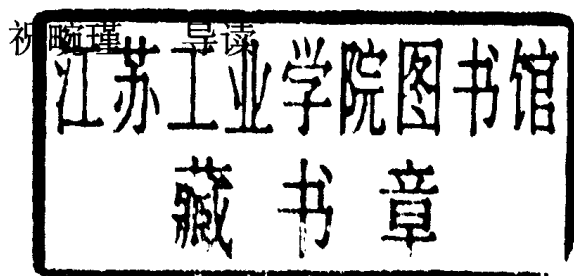 祝畹瑾 导读
江苏工业学院图书馆
藏书章